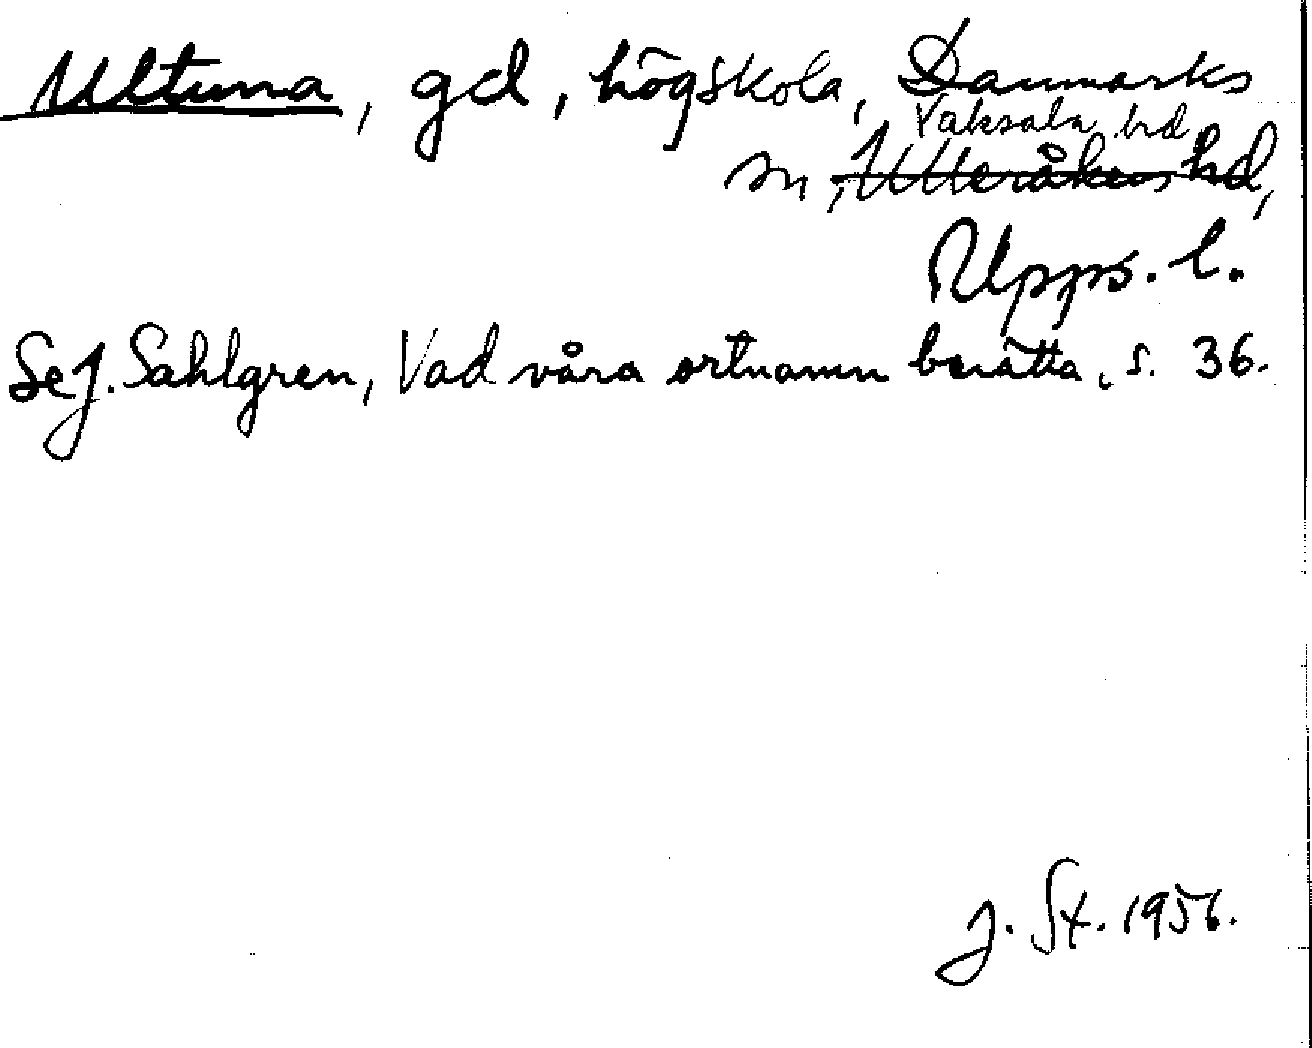 Ultuna, gd, högskola, Danmarks
Vaksala hd
sn, Ulleråkers hd,
Upps. l.
Se J. Sahlgren, Vad våra ortnamn berätta, s. 36.
J. St. 1956.